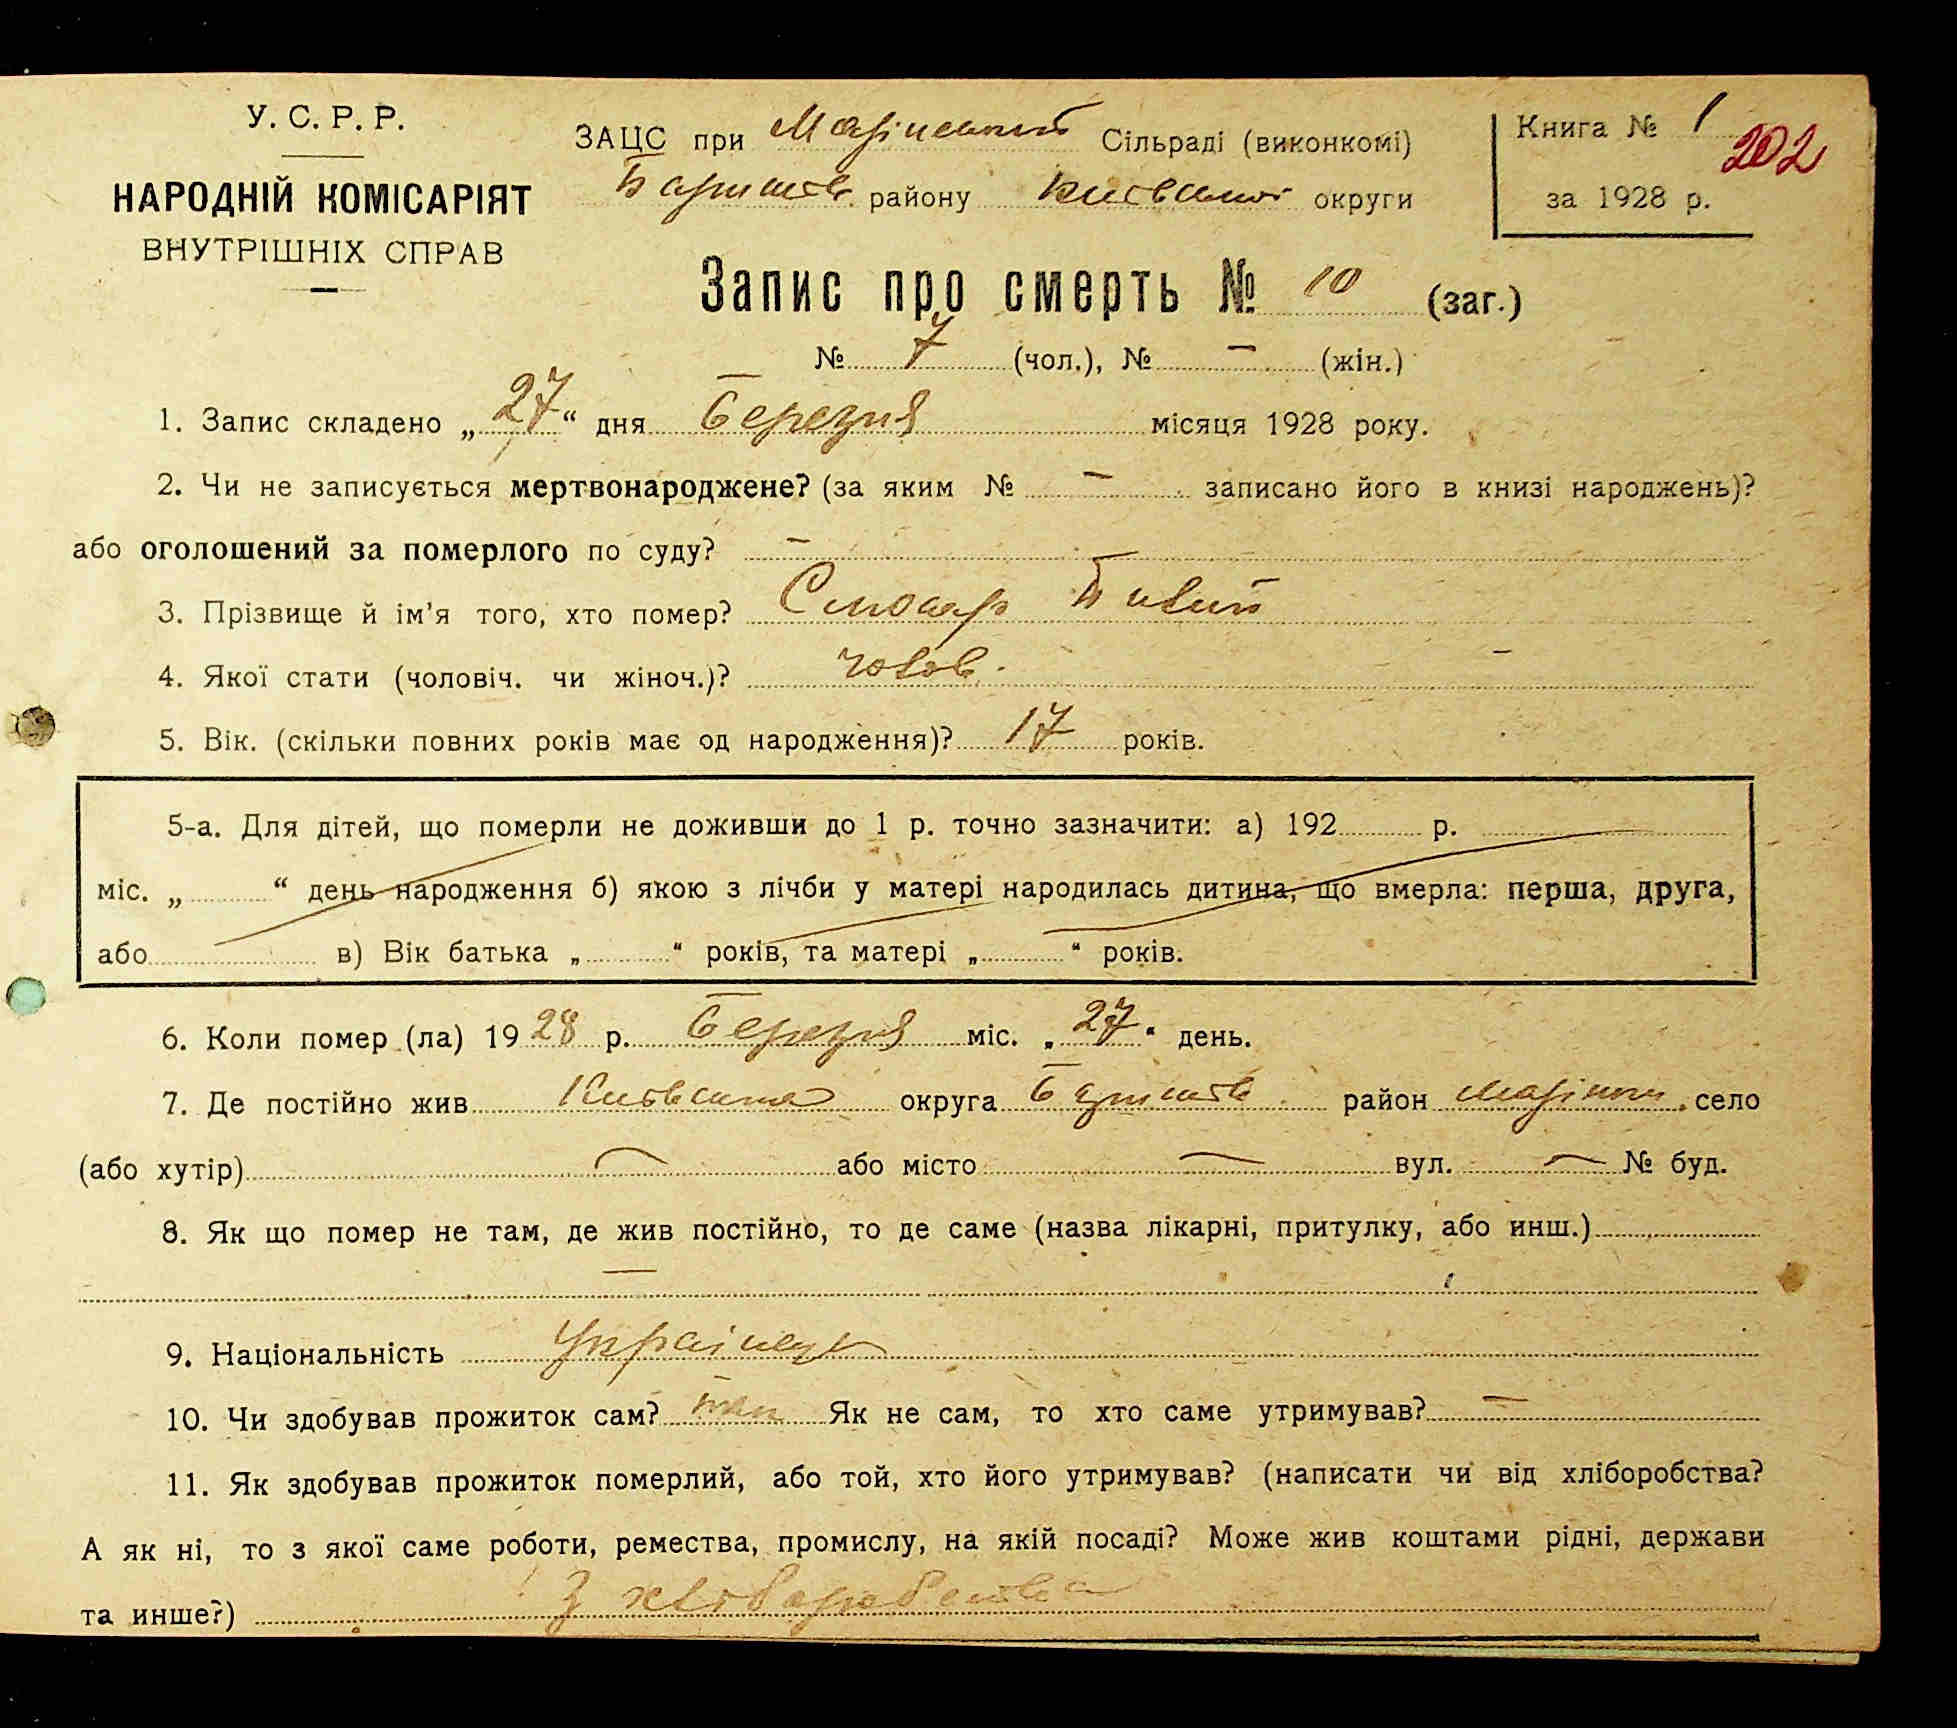 У. С. Р. Р.
НАРОДНІЙ КОМІСАРІЯТ
ВНУТРІШНІХ СПРАВ
ЗАЦС при Сільраді (виконкомі)
району округи
Книга № 1
202
за 1928 р.
Запис про смерть № 10 (заг.)
№ 7 (чол.), № — (жін.)
1. Запис складено „27“ дня Березня місяця 1928 року.
2. Чи не записується мертвонароджене? (за яким № — записано його в книзі народжень)?
або оголошений за померлого по суду? —
3. Прізвище й ім’я того, хто помер?
4. Якої стати (чоловіч. чи жіноч.)? чолов.
5. Вік. (скільки повних років має од народження)? 17 років.
5-а. Для дітей, що померли не доживши до 1 р. точно зазначити: а) 192 р.
міс. „ “ день народження б) якою з лічби у матері народилась дитина, що вмерла: перша, друга,
або в) Вік батька „ “ років, та матері „ “ років.
6. Коли помер (ла) 1928 р. Березня міс. „27“ день.
7. Де постійно жив округа район село
(або хутір) — або місто — вул. — № буд.
8. Як що помер не там, де жив постійно, то де саме (назва лікарні, притулку, або инш.)
—
9. Національність Українець
10. Чи здобував прожиток сам? так Як не сам, то хто саме утримував? —
11. Як здобував прожиток померлий, або той, хто його утримував? (написати чи від хліборобства?
А як ні, то з якої саме роботи, ремества, промислу, на якій посаді? Може жив коштами рідні, держави
та инше?) З хліборобства